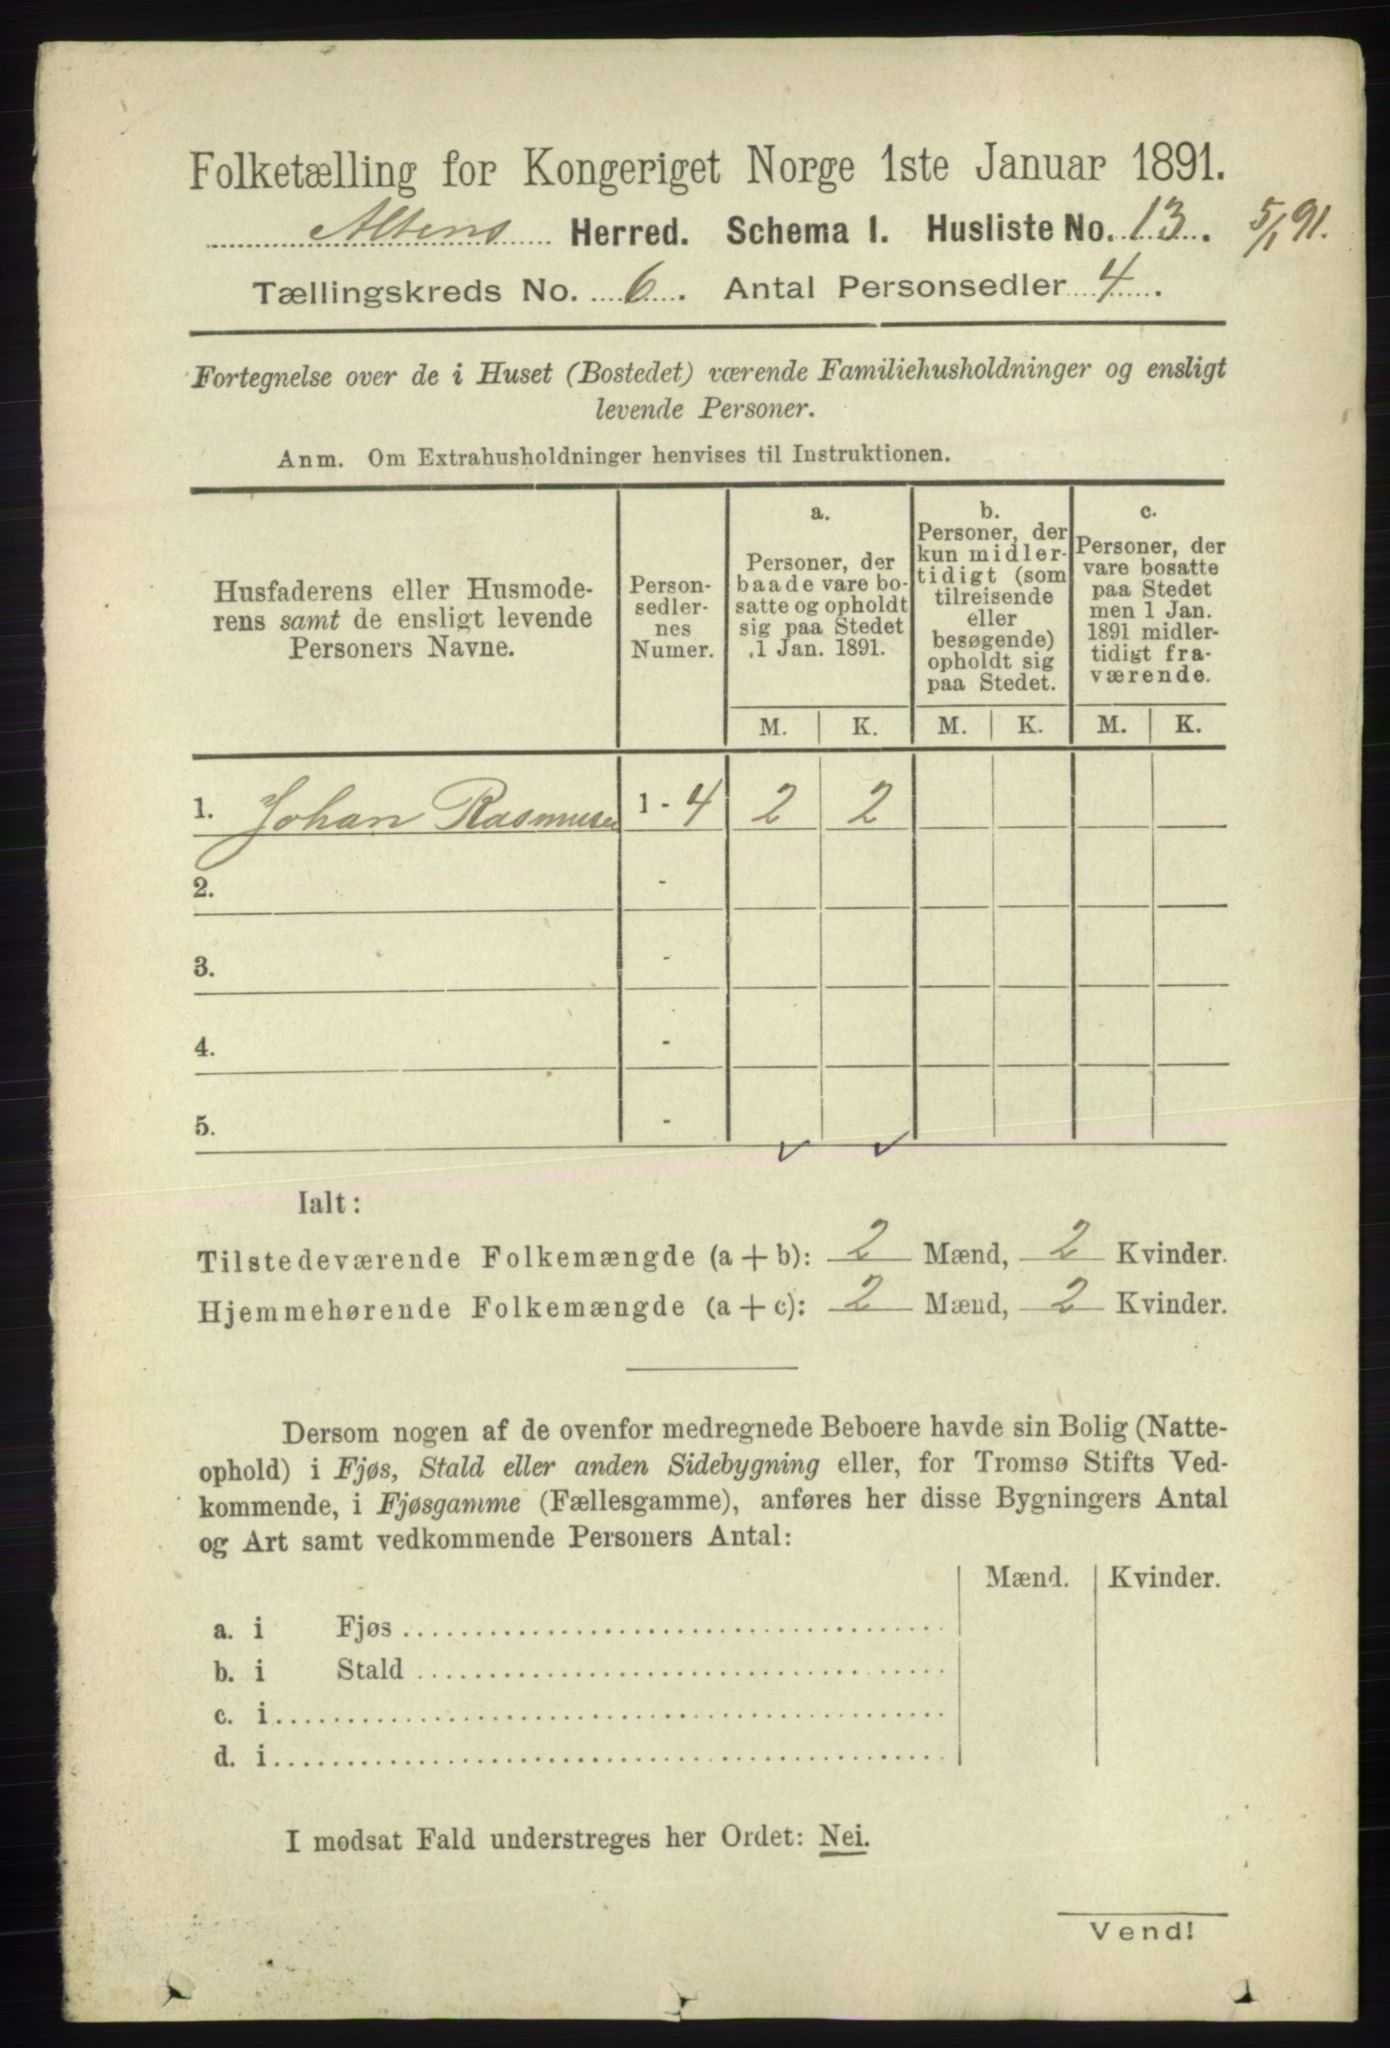 Folketælling for Kongeriget Norge 1ste Januar 1891.
Altens Herred. Schema I. Husliste No. 13. 5/1 91.
Tællingskreds No. 6. Antal Personsedler 4.
Fortegnelse over de i Huset (Bostedet) værende Familiehusholdninger og ensligt
levende Personer.
Anm. Om Extrahusholdninger henvises til Instruktionen.
Husfaderens eller Husmode-
rens samt de ensligt levende
Personers Navne.
Person-
sedler-
nes
Numer.
a.
Personer, der
baade vare bo-
satte og opholdt
sig paa Stedet
1 Jan. 1891.
b.
Personer, der
kun midler-
tidigt (som
tilreisende
eller
besøgende)
opholdt sig
paa Stedet.
c.
Personer, der
vare bosatte
paa Stedet
men 1 Jan.
1891 midler-
tidigt fra-
værende.
M. K. M. K. M. K.
1. Johan Rasmusen 1 - 4 2 2
2. -
3. -
4. -
5. -
Ialt:
Tilstedeværende Folkemængde (a + b): 2 Mænd, 2 Kvinder.
Hjemmehørende Folkemængde (a + c): 2 Mænd, 2 Kvinder.
Dersom nogen af de ovenfor medregnede Beboere havde sin Bolig (Natte-
ophold) i Fjøs, Stald eller anden Sidebygning eller, for Tromsø Stifts Ved-
kommende, i Fjøsgamme (Fællesgamme), anføres her disse Bygningers Antal
og Art samt vedkommende Personers Antal:
Mænd. Kvinder.
a. i Fjøs
b. i Stald
c. i
d. i
I modsat Fald understreges her Ordet: Nei.
Vend!